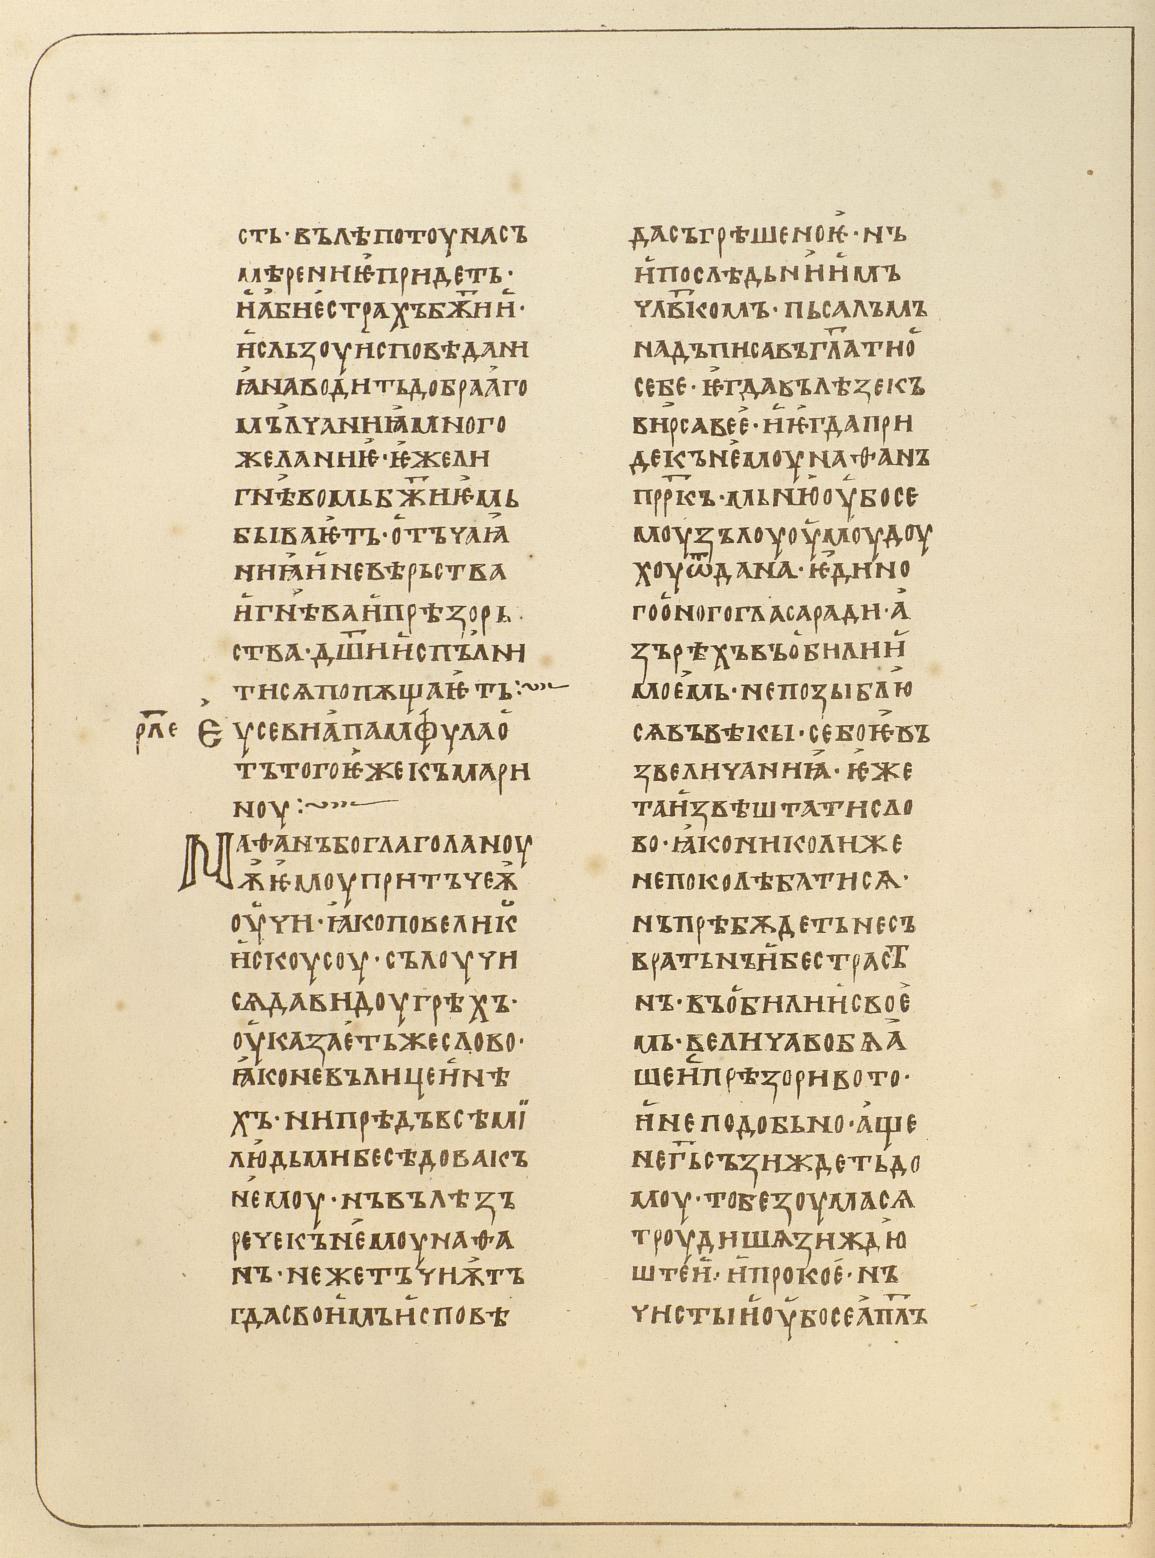 сть·вълѣпотоунасъ
мѣрениѥпридеть·
иабиестрахъбж҃ии·
исльзоуисповѣдани
ꙗнаводитьдобрааго
мълчанниꙗмного
желаниѥ·ѥжели
гнѣвомьбж҃ниѥмь
бываѥть·отъчаꙗ
ниꙗиневѣрьства
игнѣваипрѣзорь
ства·дш҃ииспълни
тисѧпопѫщаѥть:~
рл҃е Еусевиапамфулао
тътогоѥжекъмари
ноу:~
Наѳанъбоглаголаноу
ѫѥмоупритъчеѭ
оучи·ꙗкоповелик
искоусоу·сълоучи
сѧдавидоугрѣхъ·
оуказаетьжеслово·
ꙗконевълицеинѣ
хъ·нипрѣдъвсѣмї
людьмибесѣдовакъ
немоу·нъвълѣзъ
речекънемоунаѳа
нъ·нежетъчиѫтъ
гдасвоимъисповѣ
дасъгрѣшеноѥ·нъ
ипослѣдьниимъ
члв҃комъ·пьсалъмъ
надъписавъгл҃атио
себе·ѥгдавълѣзекъ
вирсавее·иѥгдапри
декънемоунаѳанъ
прр҃къ·мьнюоубосе
моузълоуоумоудоу
хоуѿдана·ѥдино
гооногогласаради·а
зърѣхъвъобилии
моемь·непозыблю
сѧвъвѣкы·себоѥвъ
звеличанниꙗ·ѥже
таизвѣштатисло
во·ꙗконинколиже
непоколѣбатисѧ·
нъпрѣбѫдетьнесъ
вратьнъибестраст
нъ·въобилиисвое
мь·величавобѧа
шеипрѣзоривото·
инеподобьно·аще
нег҃ьсъзиждетьдо
моу·тобезоумасѧ
троудишѧзиждѫю
штеи·ипрокое·нъ
чистыиоубосеапл҃ъ